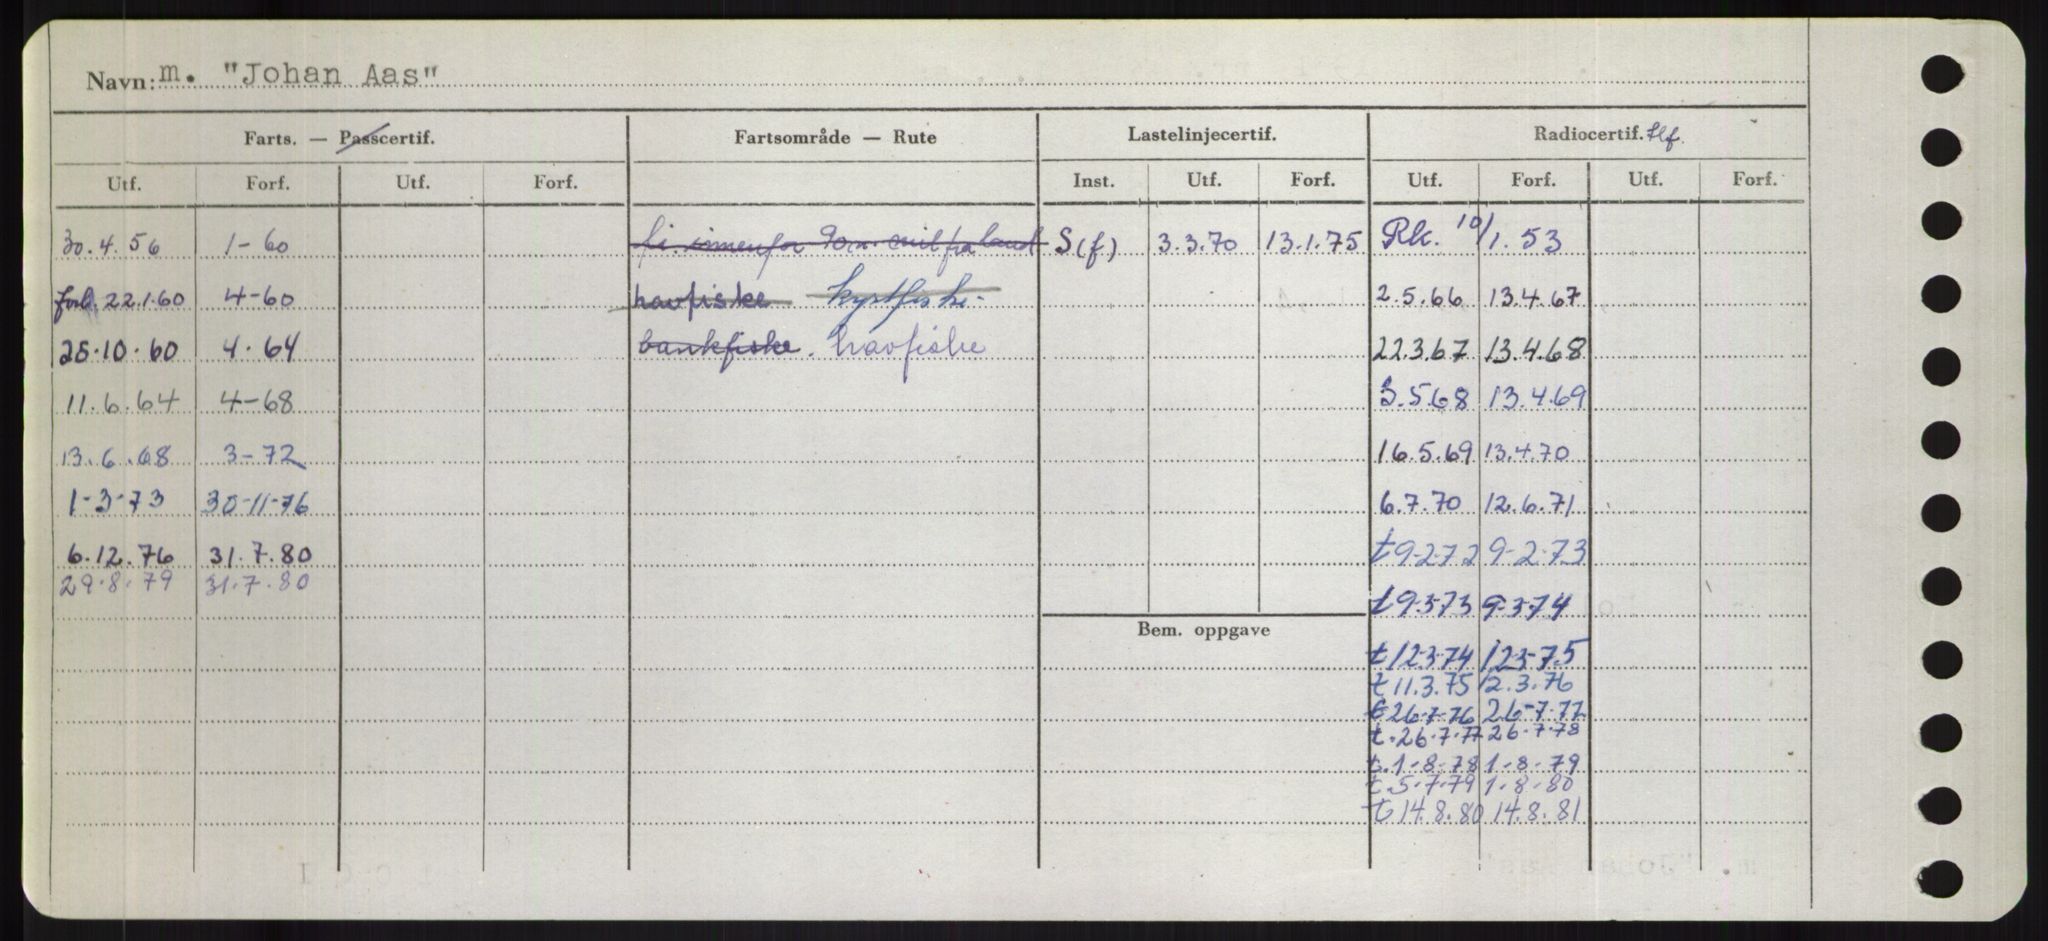 Navn: m. "Johan Aas"
Farts. — Passcertif. Fartsområde — Rute Lastelinjecertif. Radiocertif. tlf.
Utf. Forf. Utf. Forf. Inst. Utf. Forf. Utf. Forf. Utf. Forf.
30.4.56 1-60 fi. innenfor mil fra land S(f) 3.3.70 13.1.75 Rk. 10/1.53
forl. 22.1.60 4-60 havfiske kystfiske- 2.5.66 13.4.67
25.10.60 4.64 bankfiske. havfiske 22.3.67 13.4.68
11.6.64 4-68 3.5.68 13.4.69
13.6.68 3-72 16.5.69 13.4.70
1-3-73 30-11-76 6.7.70 12.6.71
6.12.76 31.7.80 t 9-2-72 9-2-73
29.8.79 31.7.80
t 9-3-73 9-3-74
Bem. oppgave
t 12-3-74 12-3-75
t 11.3.75 12.3.76
t 26-7-76 26-7-77
t. 26.7.77 26.7.78
t. 1-8-78 1-8-79
t. 5.7.79 1.8.80
t 14.8.80 14.8.81